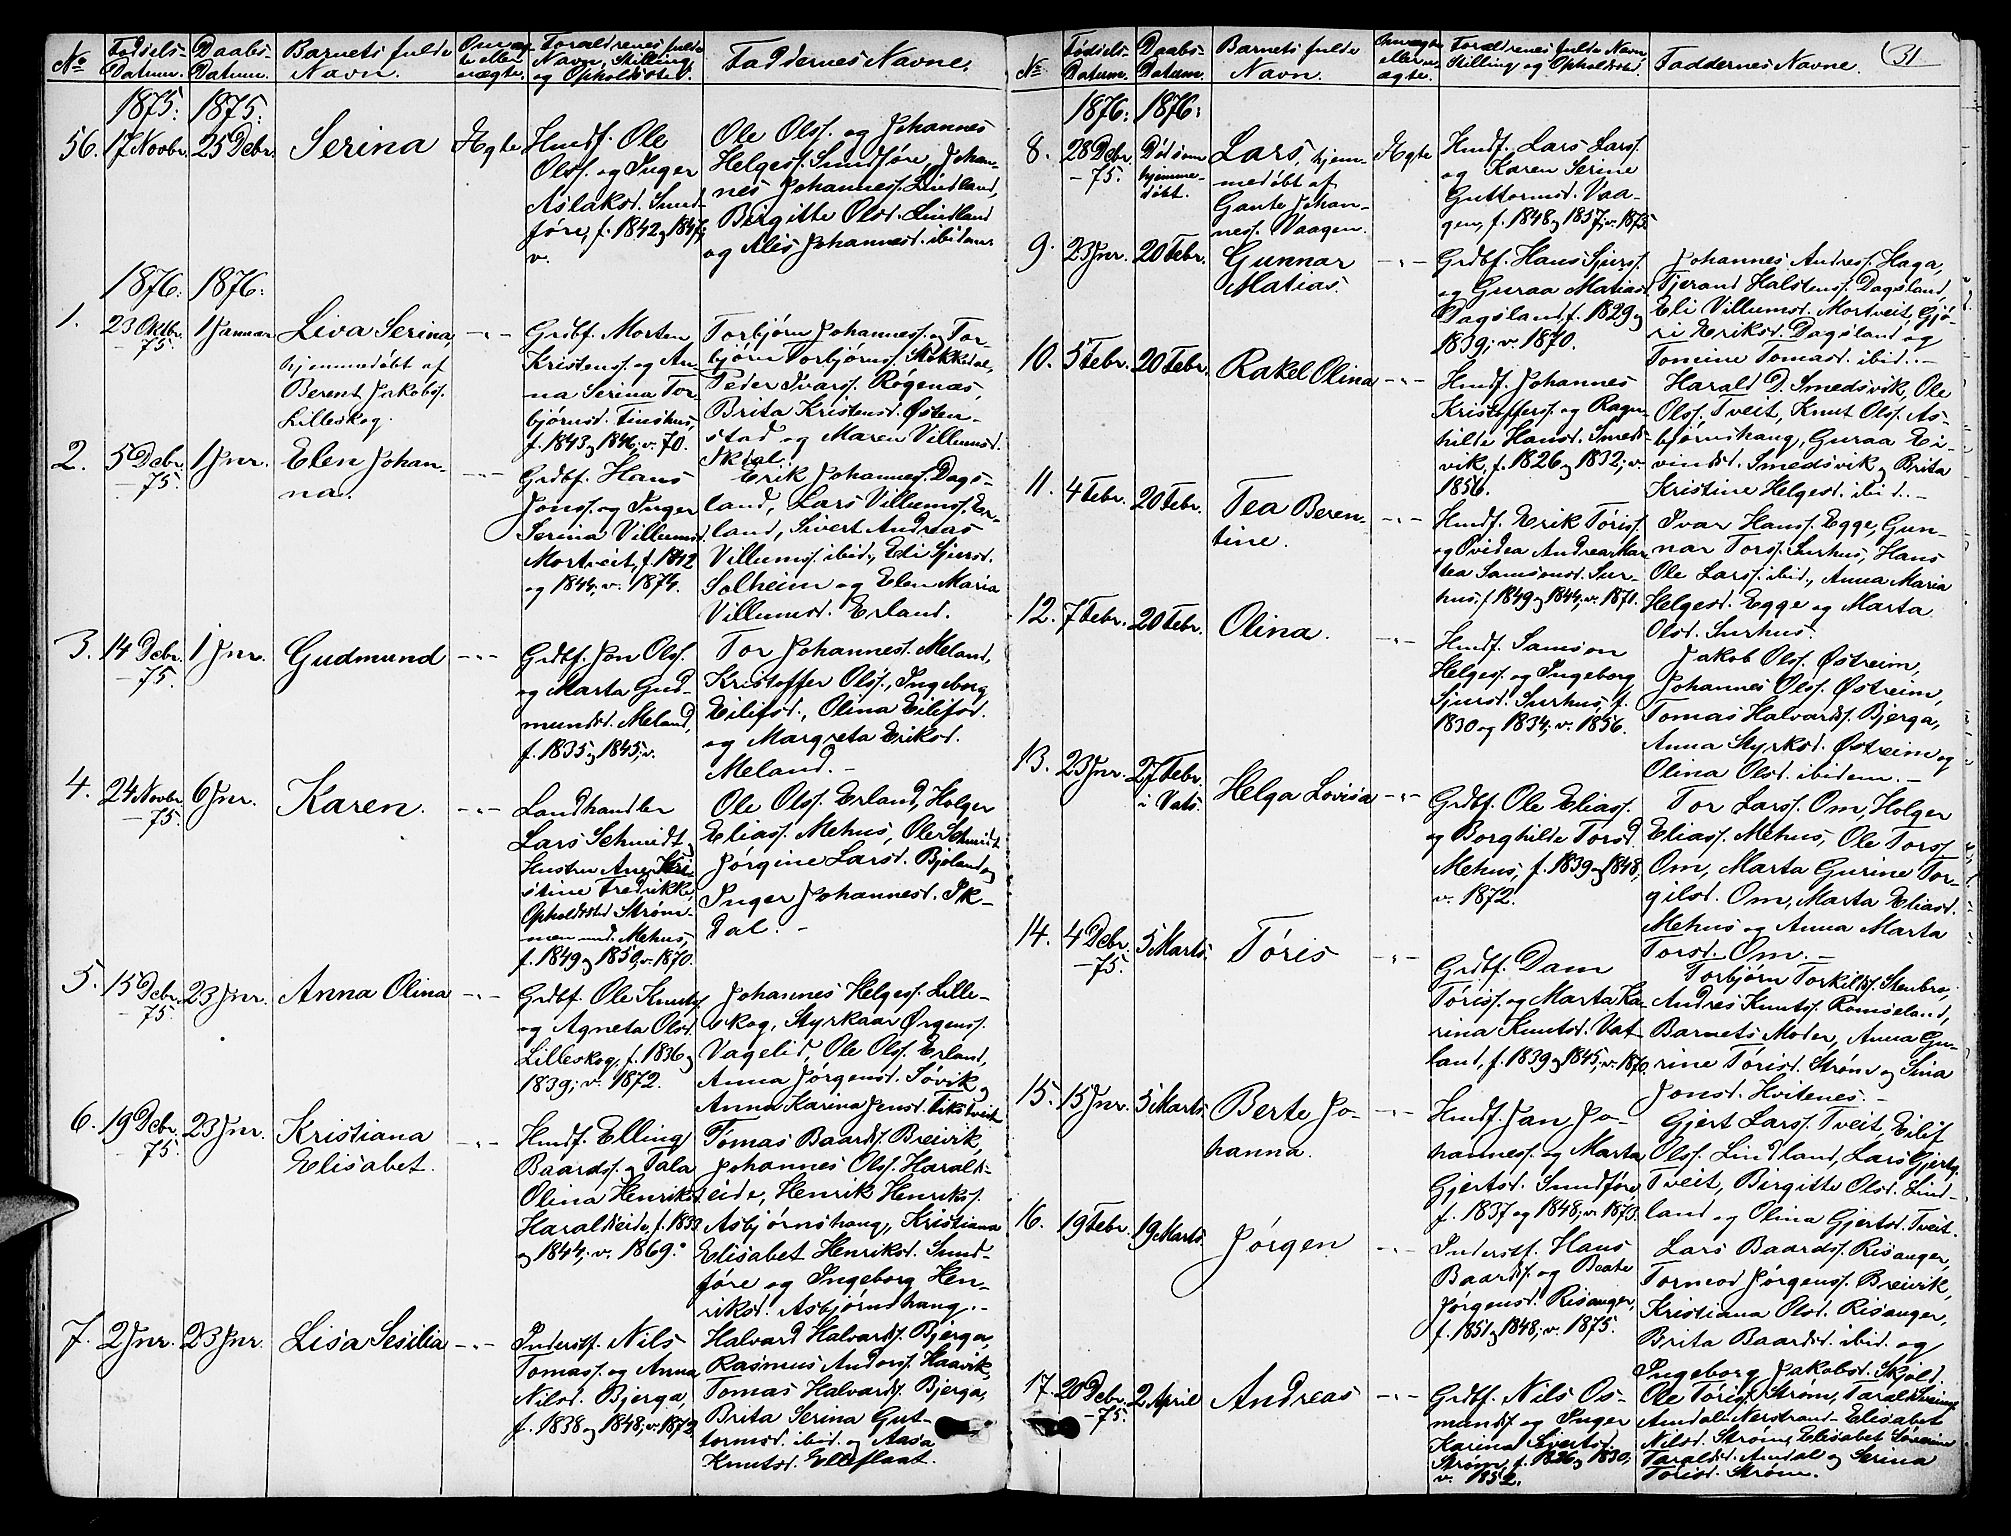 No
Fødsels-
Datum.
Daabs-
Datum.
Barnets fulde
Navn.
Om æg-
te eller
uægte.
Forældrenes fulde
Navn, Stilling
og Opholdssted.
Faddernes Navne.
1875: 1875:
56. 17 Novbr. 25 Debr. Serina Ægte
Huusf. Ole
Ols. og Inger
Aslaksd. Sund-
føre, f. 1842 og 1847;
v.
Ole Ols. og Johannes
Helges. Sundføre, Johan-
nes Johanness. Lindland,
Birgitte Olsd. Lindland
og Alis Johannesd. ibidem.
1876: 1876:
1. 23 Oktbr. 1 Januar Liva Serina,
-75.
hjemmedøbt af
Berent Jakobs.
Lilleskog.
Grdbf. Morten
Kristens. og An-
na Serina Tor-
bjørnsd. Finshus,
f. 1843 og 1846; v. 70.
Torbjørn Johanness. og Tor-
bjørn Torbjørns. Stokkedal,
Peder Ivars. Røgenæs,
Brita Kristensd. Østen-
stad og Maren Villumsd.
2. 5 Debr. 1 Jnr. Elen Johan-
-75.
na.
Grdbf. Hans
Jons. og Inger
Serina Villumsd.
Mortveit, f. 1842
og 1844; v. 1874.
Erik Johanness. Dags-
land, Lars Villums. Er-
land, Sivert Andreas
Villums. ibid., Eli Sjursd.
Solheim og Elen Maria
Villumsd. Erland.
3. 14 Debr. 1 Jnr. Gudmund
-75.
Grdbf. Jon Ols.
og Marta Gud-
mundsd. Meland,
f. 1835 og 1845; v.
Tor Johanness. Meland,
Kristoffer Ols., Ingeborg
Eilifsd., Olina Eilifsd.
og Margreta Eriksd.
Meland. -
4. 24 Novbr. 6 Jnr. Karen.
-75.
Landhandler
Lars Schmidt og
Hustru Ane Kri-
stine Fredrikke,
Opholdssted Strøm-
men und. Mehus,
f. 1849 og 1850, v. 1870.
Ole Ols. Erland, Holger
Elias. Mehus, Ole Schmidt
Jørgine Larsd. Bjoland og
Inger Johannesd. Ik-
dal. -
5. 15 Debr. 23 Jnr. Anna Olina
-75.
Grdbf. Ole Knuts.
og Agneta Olsd.
Lilleskog, f. 1836 og
1839; v. 1872.
Johannes Helges. Lille-
skog, Styrkaar Ørgens.
Vagelid, Ole Ols. Erland,
Anna Jørgensd. Søvik og
Anna Karina Jensd. Fikstveit
6. 19 Debr. 23 Jnr. Kristiana
-75.
Elisabet.
Huusf. Elling
Baards. og Tala
Olina Henriksd.
Haraldseide, f. 1832
og 1844; v. 1869.
Tomas Baards. Breivik,
Johannes Ols. Harald-
seide, Henrik Henriks.
Asbjørnshaug, Kristiana
Elisabet Henriksd. Sund-
føre og Ingeborg Hen-
riksd. Asbjørnshaug. -
7. 2 Jnr. 23 Jnr. Lisa Sesilia
Inderstf. Nils
Tomass. og Anna
Nilsd. Bjerga,
f. 1838 og 1848; v. 1872.
Halvard Halvards. Bjerga,
Rasmus Anders. Haavik,
Tomas Halvards. Bjerga,
Brita Serina Gut-
tormsd. ibid. og Aasa
Knutsd. Elleflaat.
31.
No
Fødsels-
Datum.
Daabs-
Datum.
Barnets fulde
Navn.
Om ægte
eller u-
ægte.
Forældrenes fulde Navn,
Stilling og Opholdssted.
Faddernes Navne.
1876: 1876:
8. 28 Debr. Død som Lars, hjem- Ægte
-75.
hjemme-
døbt.
medøbt af
Gaute Johan-
ness. Vaagen.
Huusf. Lars Lars.
og Karen Serine
Guttormsd. Vaa-
gen, f. 1848 og 1857; v. 1875.
9. 23 Jnr. 20 Febr. Gunnar
Matias.
Grdbf. Hans Sjurs.
og Guraa Matiasd.
Dagsland f. 1829 og
1839; v. 1870.
Johannes Andres. Haga,
Tjerand Halstens. Dagsland,
Eli Villumsd. Mortveit, Gjø-
ri Eriksd. Dagsland og
Toneine Tomasd. ibid. -
10. 5 Febr. 20 Febr. Rakel Olina
Huusf. Johannes
Kristoffers. og Ragn-
hilde Hansd. Smeds-
vik, f. 1826 og 1832; v.
1856.
Harald D. Smedsvik, Ole
Ols. Tveit, Knut Ols. As-
bjørnshaug, Guraa Ei-
vindsd. Smedsvik og Brita
Kristine Helgesd. ibid. -
11. 4 Febr. 20 Febr. Tea Beren-
tine.
Huusf. Erik Tøris.
og Ovidea Andrea Mar-
tea Samsonsd. Sur-
hus, f. 1849 og 1844; v. 1871.
Ivar Hans. Egge, Gun-
nar Tors. Surhus, Hans
Ole Lars. ibid., Anna Maria
Helgesd. Egge og Marta
Olsd. Surhus.
12. 7 Febr. 20 Febr. Olina.
Huusf. Samson
Helges. og Ingeborg
Sjursd. Surhus, f.
1830 og 1834; v. 1856.
Jakob Ols. Østreim,
Johannes Ols. Østreim,
Tomas Halvards. Bjerga,
Anna Styrksd. Østreim og
Olina Olsd. ibidem. -
13. 23 Jnr. 27 Febr. Helga Lovisa
i Vats.
Grdbf. Ole Elias.
og Borghilde Torsd.
Mehus, f. 1839 og 1848,
v. 1872.
Tor Lars. Om, Holger
Elias. Mehus, Ole Tors.
Om, Marta Gurine Tor-
gilsd. Om, Marta Eliasd.
Mehus og Anna Marta
Torsd. Om. -
14. 4 Debr. 5 Marts. Tøris
-75.
Grdbf. Dam
Tøris. og Marta Ka-
rina Knutsd. Vat-
land, f. 1839 og 1845; v. 1870.
Torbjørn Torkilds. Stenbro,
Andres Knuts. Romseland,
Barnets Moder, Anna Gu-
rine Tørisd. Strøm og Sina
Jonsd. Hvitenes. -
15. 15 Jnr. 5 Marts Berte Jo-
hanna.
Huusf. Jan Jo-
hanness. og Marta
Gjertsd. Sundføre,
f. 1837 og 1848; v. 1873.
Gjert Lars. Tveit, Eilif
Ols. Lindland, Lars Gjerts.
Tveit, Birgitte Olsd. Lind-
land og Olina Gjertsd. Tveit.
16. 19 Febr. 19 Marts. Jørgen
Inderstf. Hans
Baards. og Beate
Jørgensd. Risanger,
f. 1851 og 1848; v. 1875.
Lars Baards. Risanger,
Tormod Jørgens. Breivik,
Kristiana Olsd. Risanger,
Brita Baardsd. ibid. og
Ingeborg Jakobsd. Skjold.
17. 20 Debr. 2 April Andreas
-75.
Grdbf. Nils Os-
munds. og Inger
Karina Sivertsd.
Strøm, f. 1826 og 1830,
v. 1852.
Ole Tøris. Strøm,
Amdal Nerstrand, Elisabet
Nilsd. Strøm, Elisabet Severine
Taraldsd. Amdal og Serina
Tørisd. Strøm.